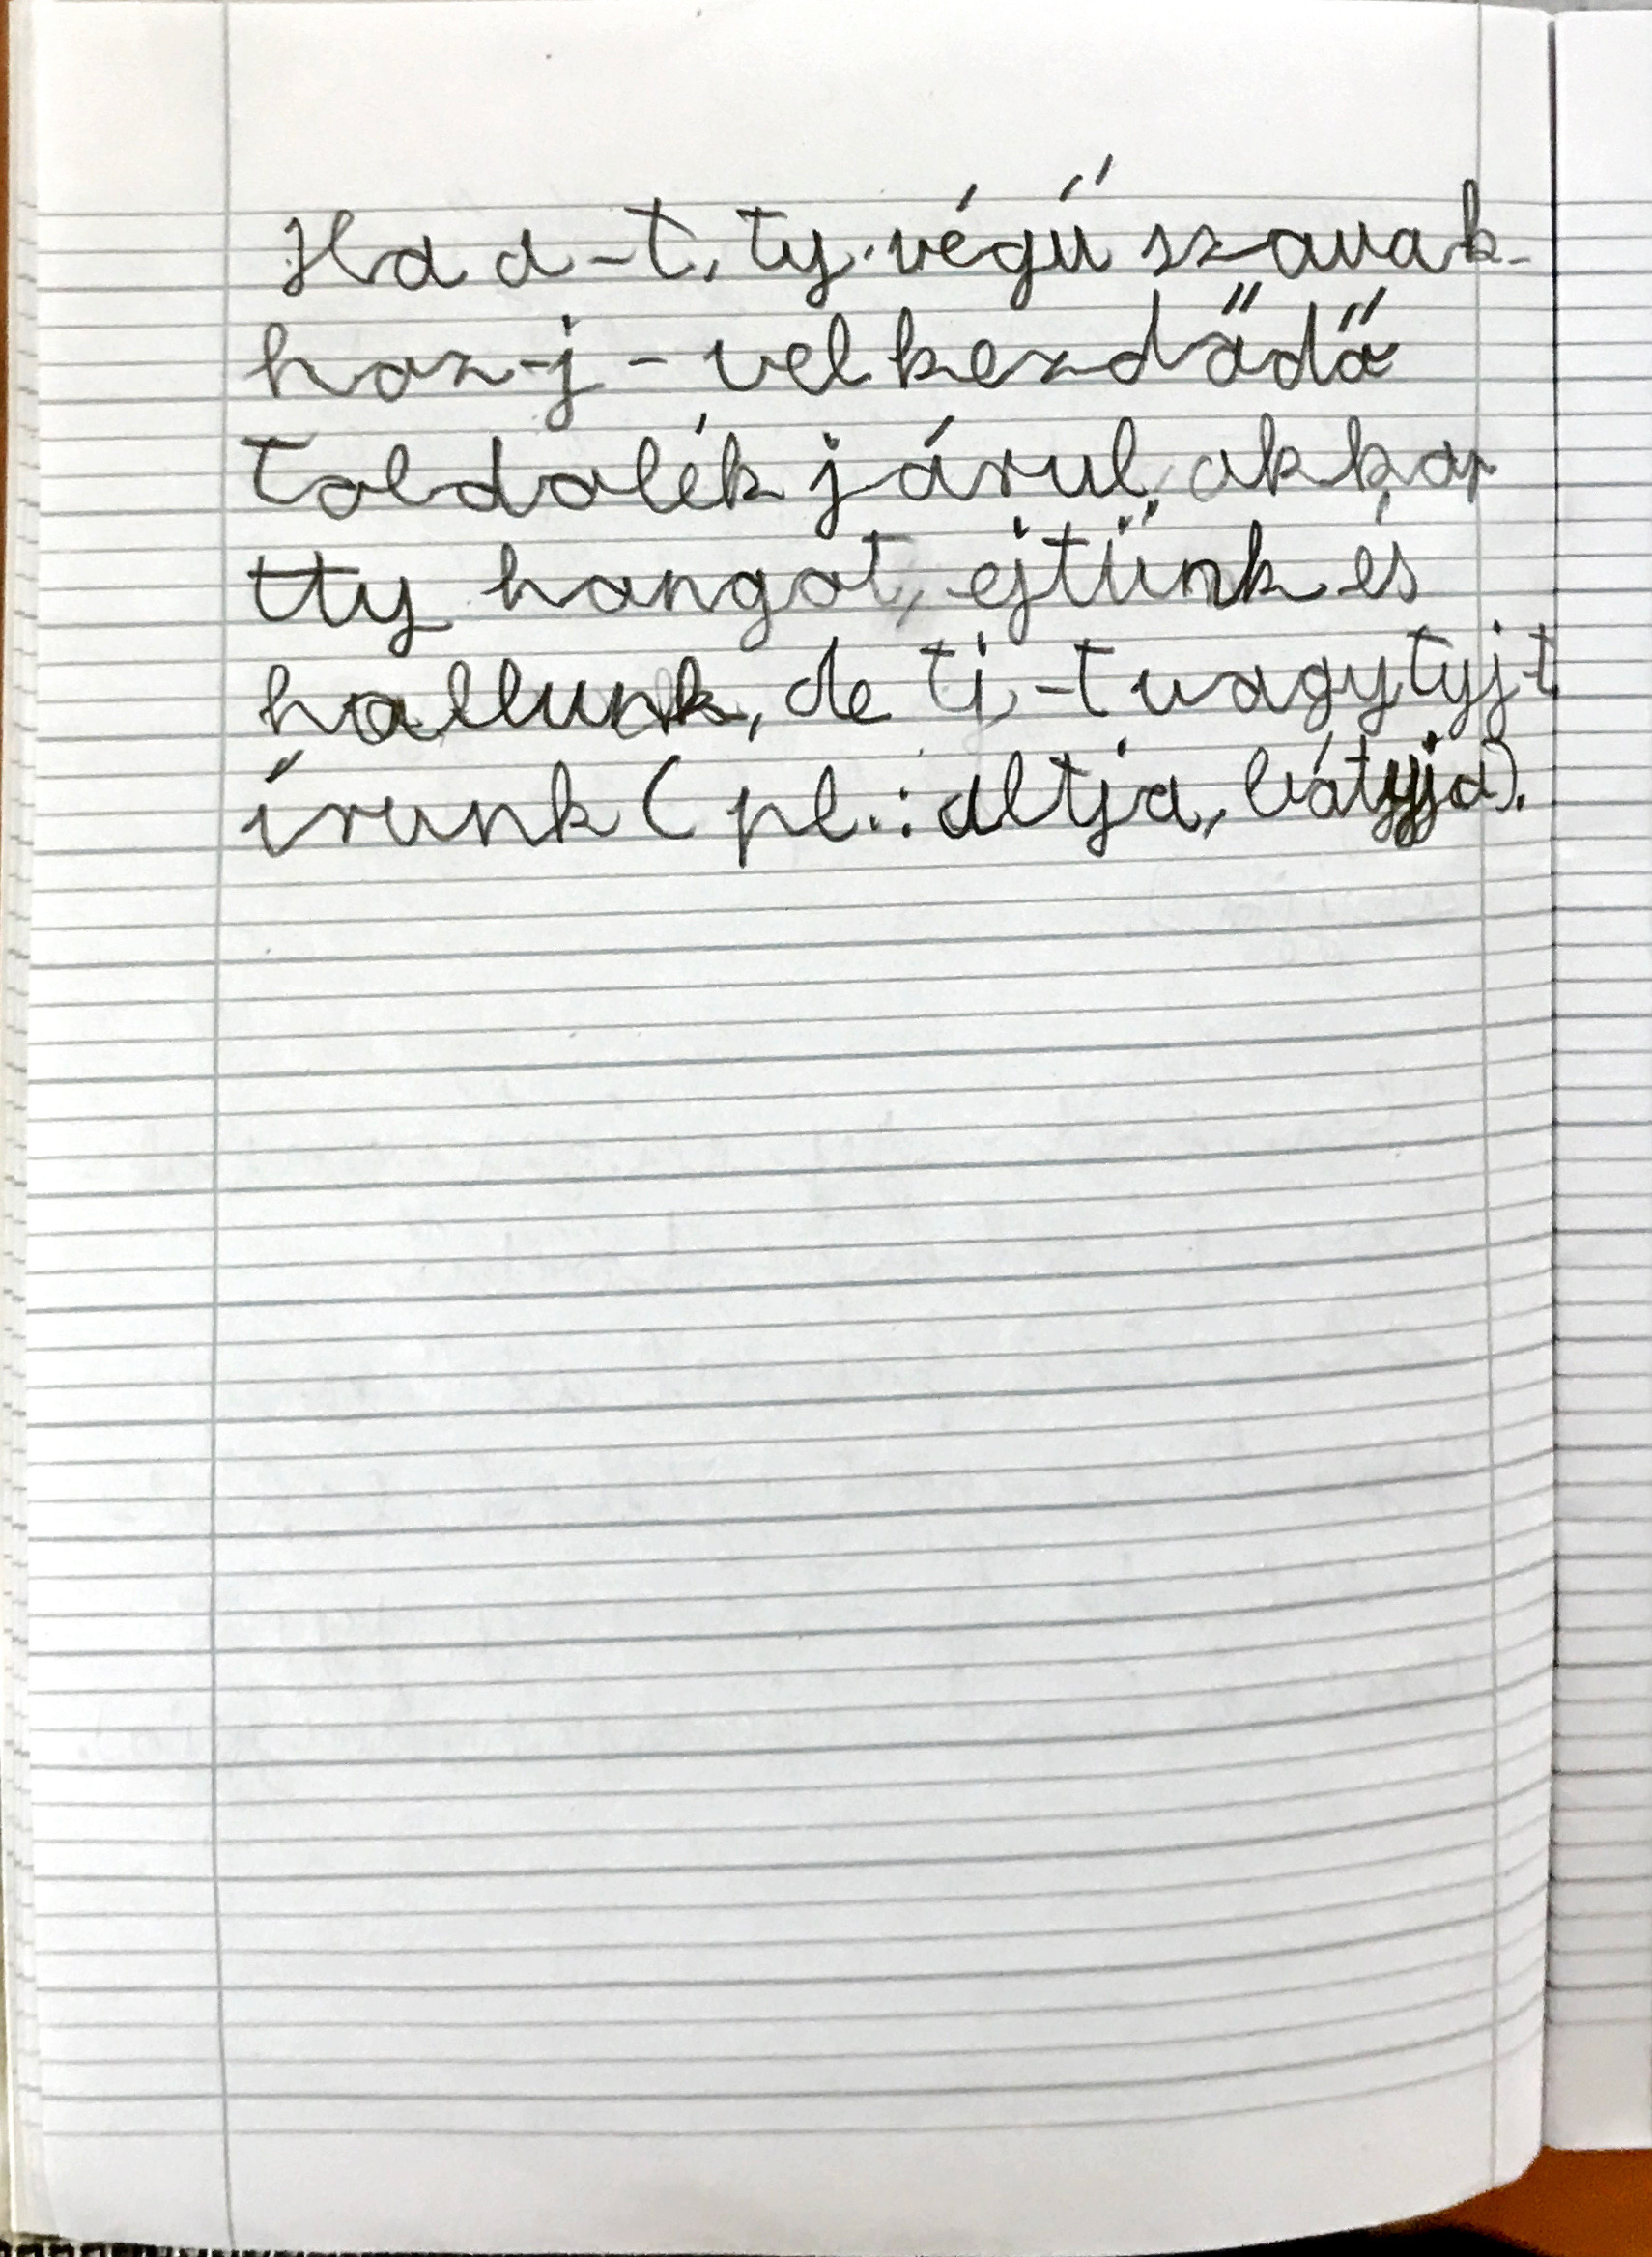 Ha a -t, ty végű szavak-
hoz -j - vel kezdődő
toldalék járul, akkor
tty hangot, ejtünk és
hallunk, de tj -t vagy tyj-t
írunk (pl.: altja, bátyja).